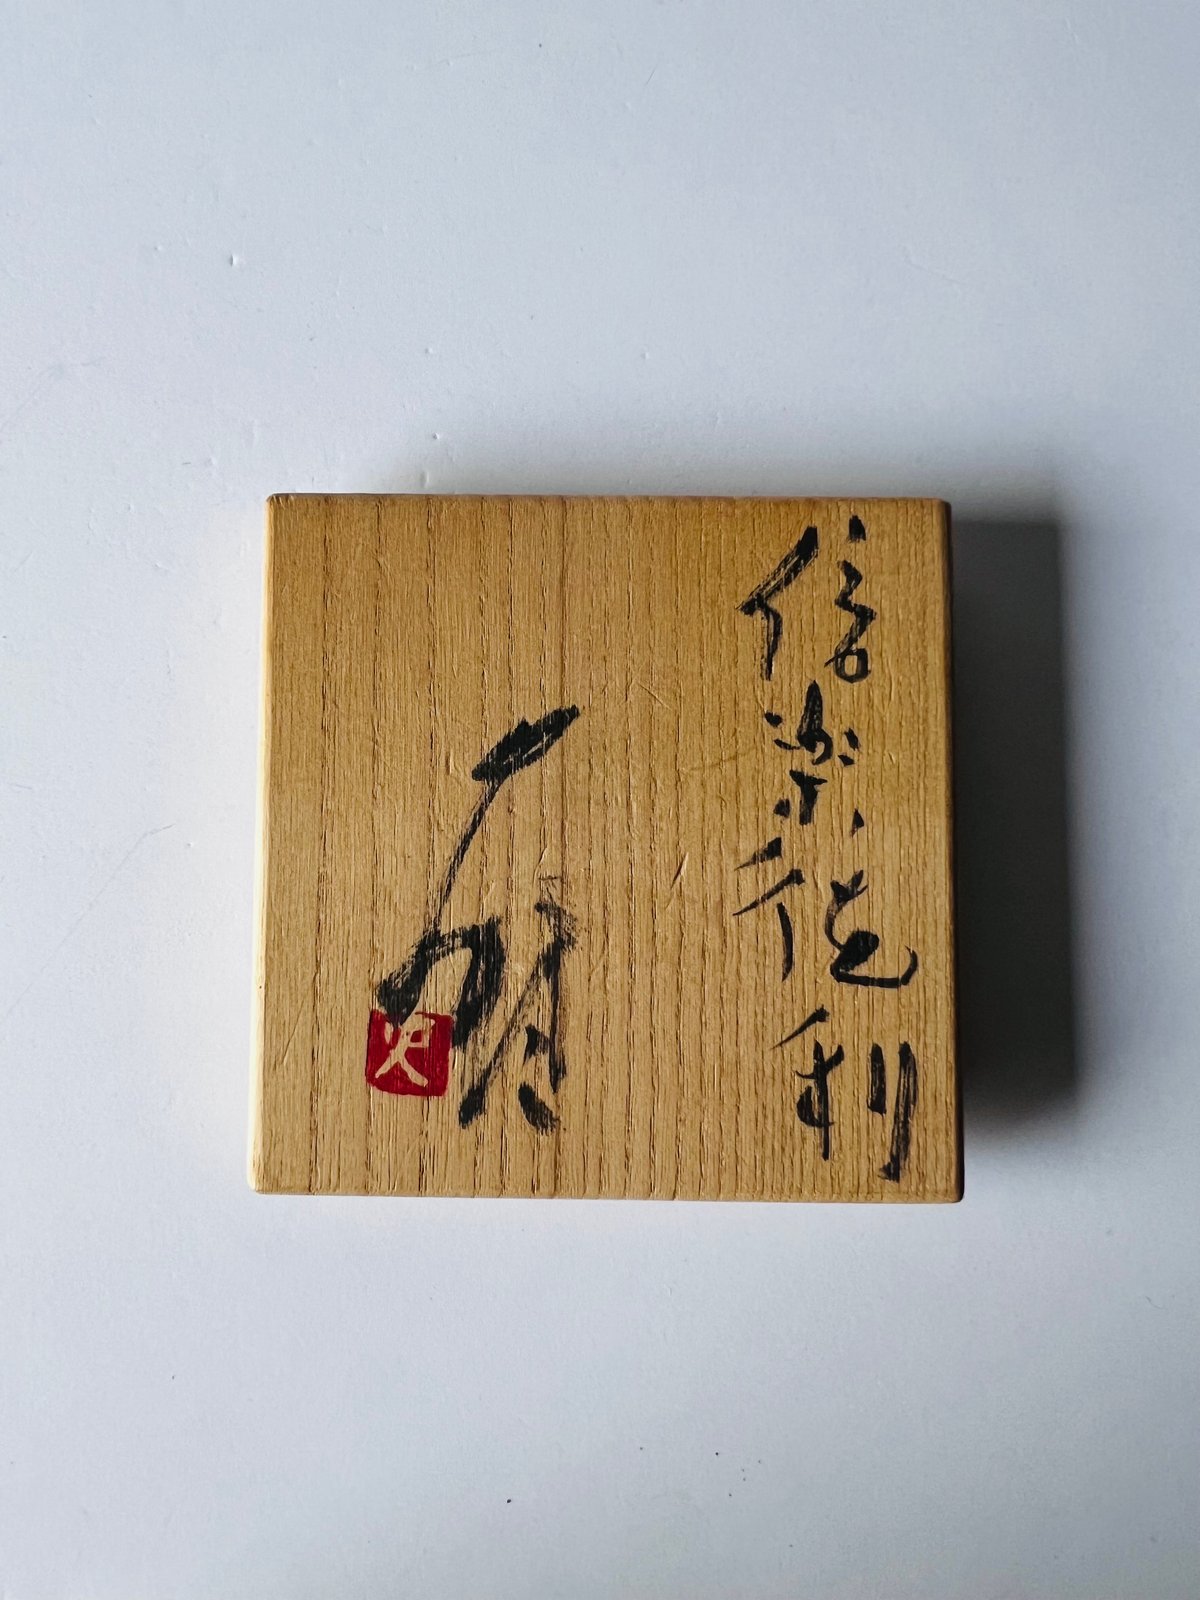 信楽徳利
火